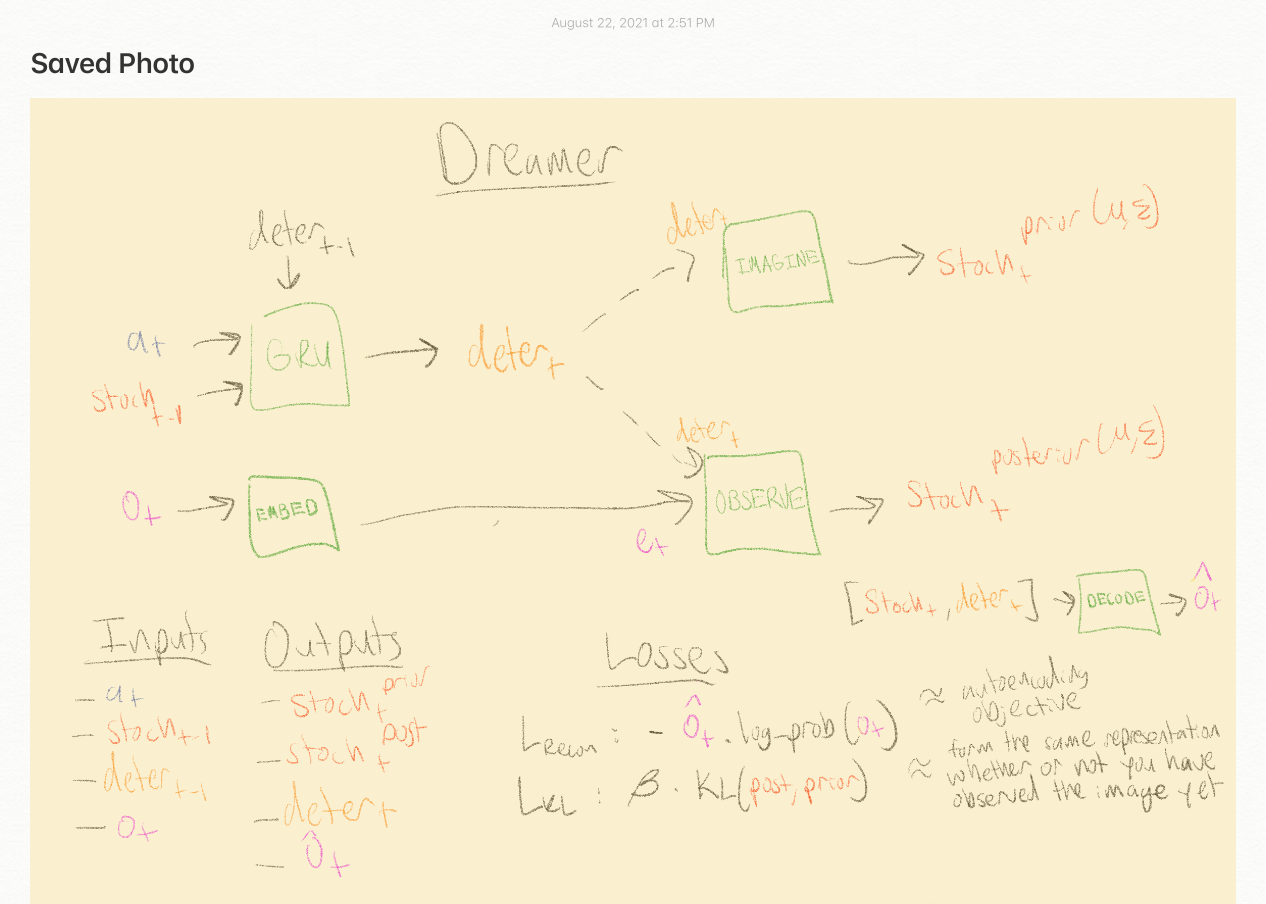 August 22, 2021 at 2:51 PM
Saved Photo
Dreamer
deter_t-1
a_t
stoch_t-1
GRU
deter_t
deter_t
IMAGINE
stoch_t prior (μ,Σ)
o_t
EMBED
e_t
deter_t
OBSERVE
stoch_t posterior (μ,Σ)
[stoch_t, deter_t] → DECODE → ô_t
Inputs
– a_t
– stoch_t-1
– deter_t-1
– o_t
Outputs
– stoch_t prior
– stoch_t post
– deter_t
– ô_t
Losses
L_Recon : - ô_t . log_prob(o_t)
≈ autoencoding
objective
L_KL : β · KL(post, prior)
≈ form the same representation
whether or not you have
observed the image yet